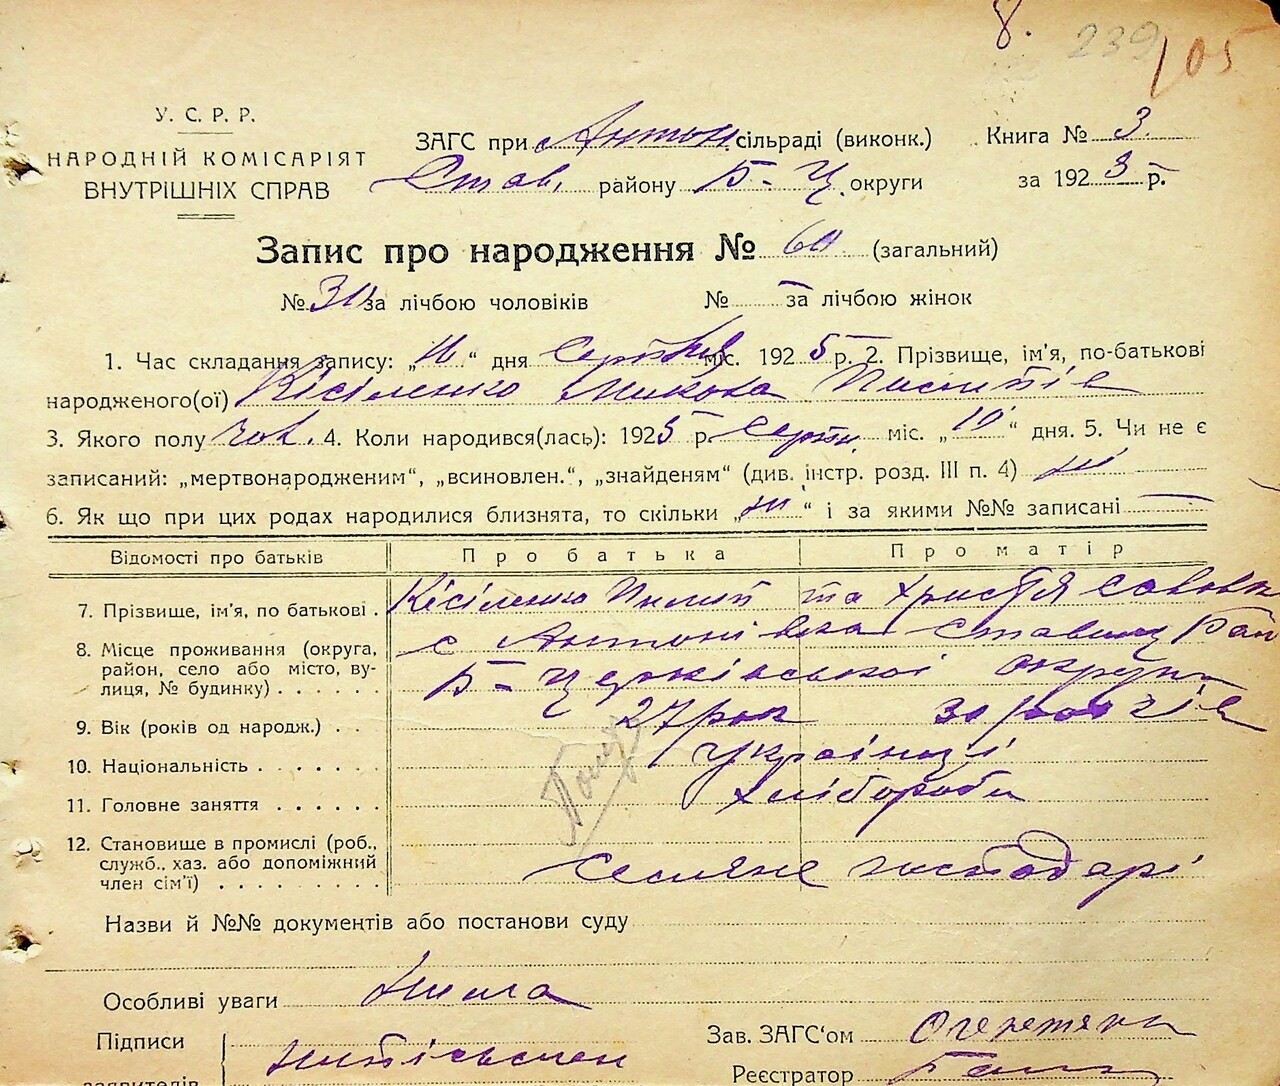 8. 239 105
У. С. Р. Р.
НАРОДНІЙ КОМІСАРІЯТ
ВНУТРІШНІХ СПРАВ
ЗАГС при Антон. сільраді (виконк.) Книга № 3
Став. району Б-Ц. округи за 1923 р.
Запис про народження № 60 (загальний)
№ 31 за лічбою чоловіків № – за лічбою жінок
1. Час складання запису: „ “ дня Серпня міс. 1925 р. 2. Прізвище, ім'я, по-батькові
народженого(ої) Кісіленко Микола
3. Якого полу чол. 4. Коли народився(лась): 1925 р. Серпн. міс. „10“ дня. 5. Чи не є
записаний: „мертвонародженим“, „всиновлен.“, „знайденям“ (див. інстр. розд. III п. 4) ні
6. Як що при цих родах народилися близнята, то скільки „ні“ і за якими №№ записані —
Відомості про батьків Про батька Про матір
7. Прізвище, ім'я, по батькові . Кісіленко та Христя
8. Місце проживання (округа, район, село або місто, вулиця, № будинку) . . . . . с Антонівка Ставищ Рай
Б-Церківської округи
9. Вік (років од народж.) . . 27 рок 30
10. Національність . . . . . . Українці
11. Головне заняття . . . . . . хлібороби
12. Становище в промислі (роб., служб., хаз. або допоміжний член сім'ї) . . . . . . . . Селяне господарі
Назви й №№ документів або постанови суду
Особливі уваги
Підписи
заявителів
Зав. ЗАГС'ом
Реєстратор